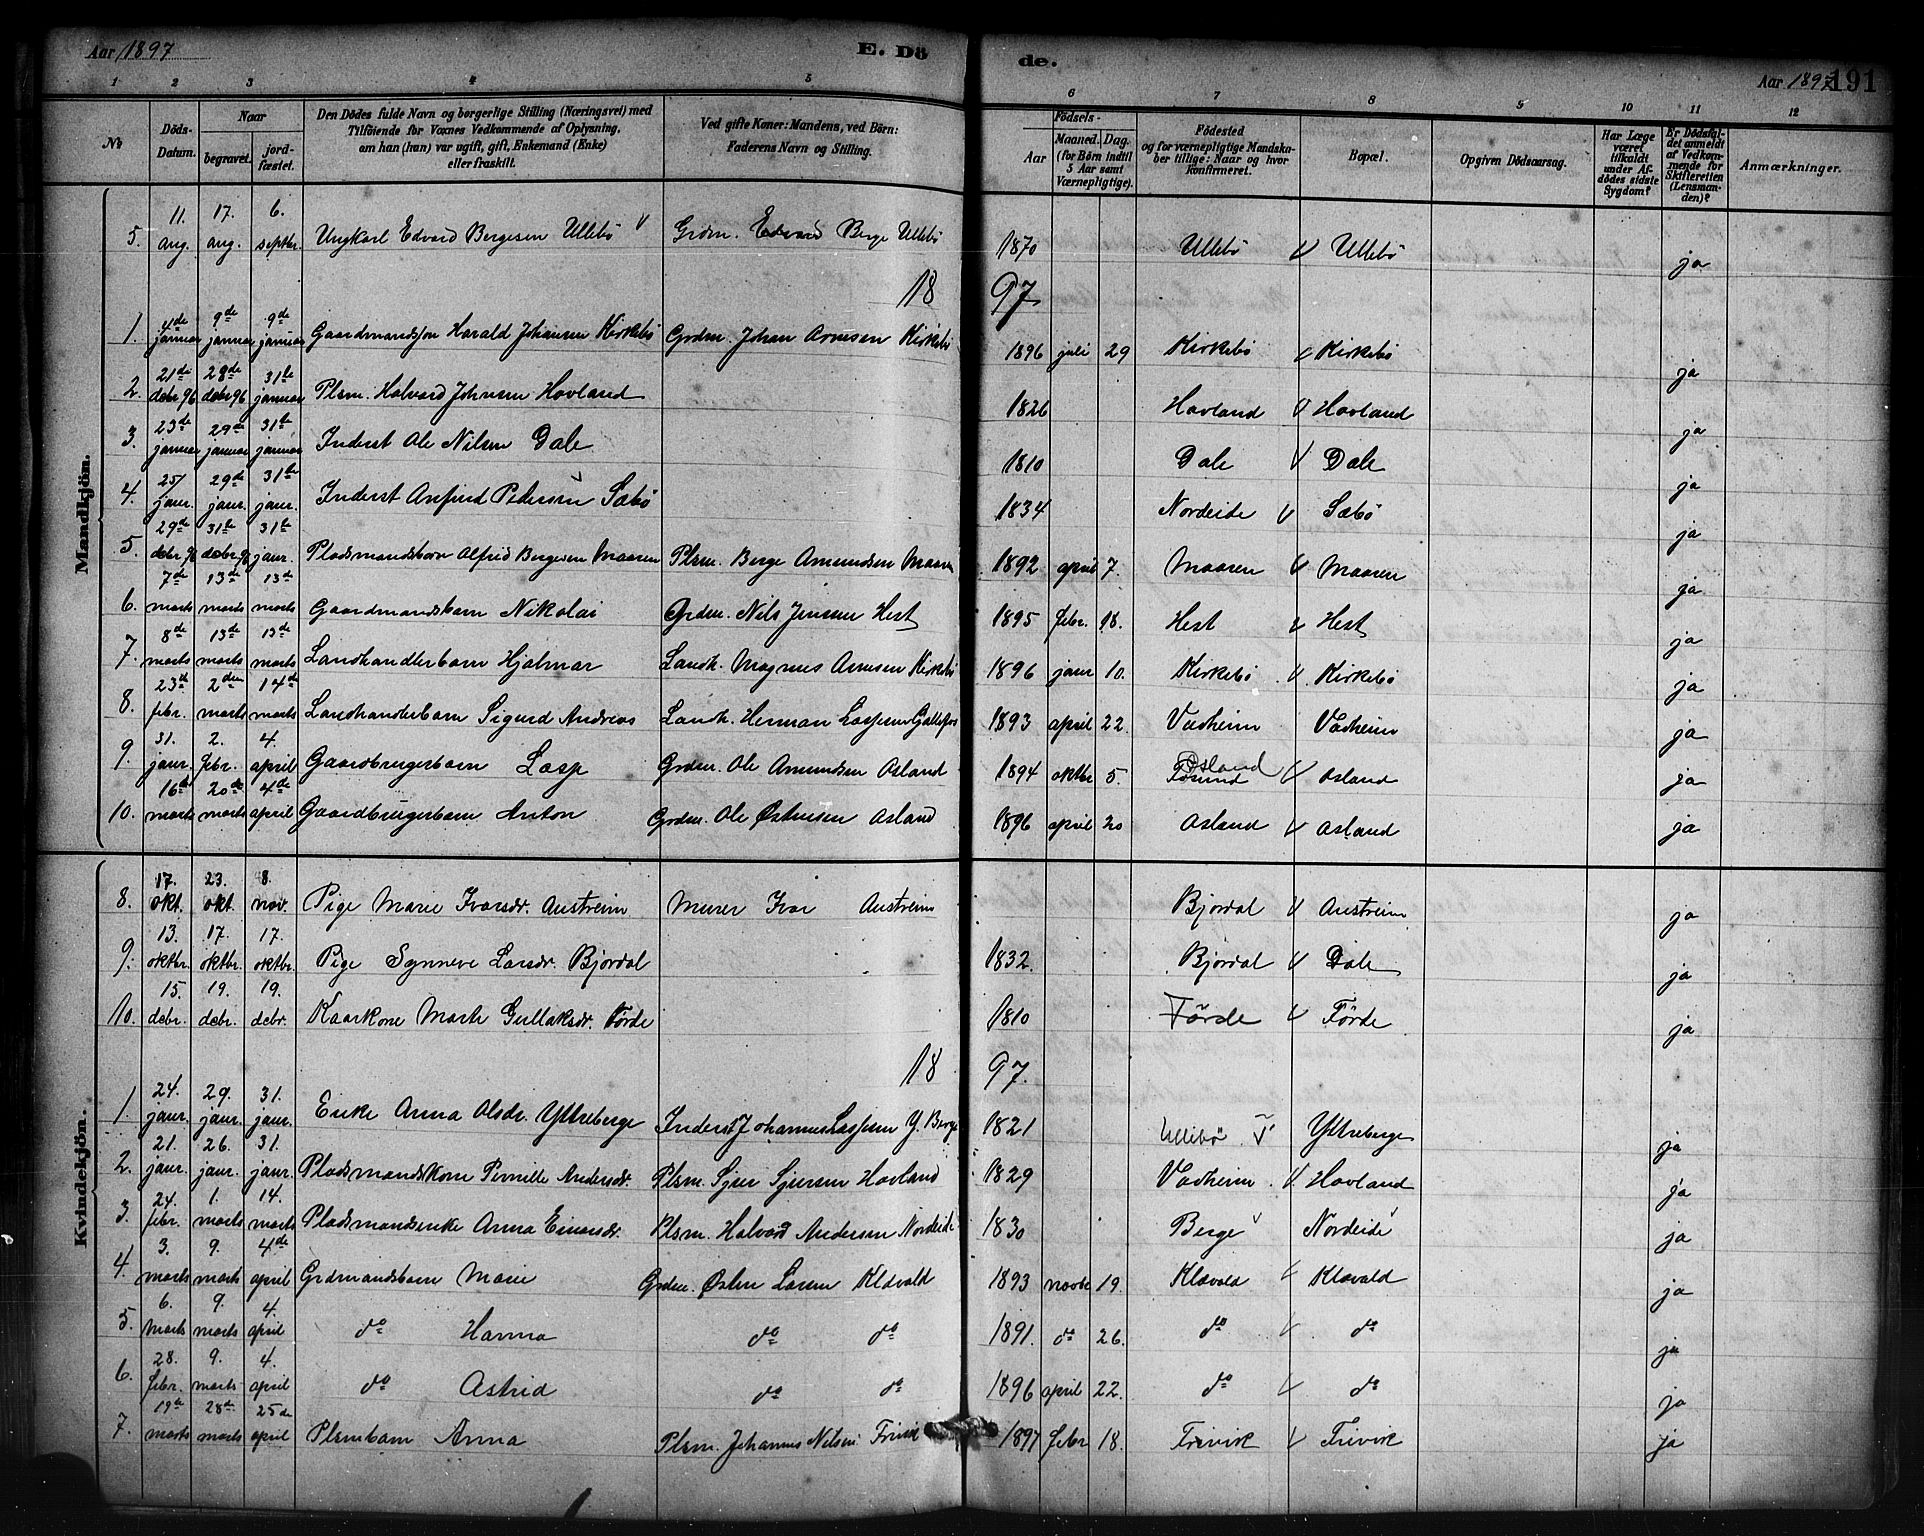 Aar 1897 E. Dö de. Aar 1897 191
1 2 3 4 5 6 7 8 9 10 11 12
No Döds-Datum. Naar begravet. jordfæstet. Den Dödes fulde Navn og borgerlige Stilling (Næringsvei) med Tilföiende for Voxnes Vedkommende af Oplysning, om han (hun) var ugift, gift, Enkemand (Enke) eller fraskilt. Ved gifte Koner: Mandens, ved Börn: Faderens Navn og Stilling. Födsels- Aar Maaned. Dag. (for Börn indtil 5 Aar samt Værnepligtige). Födested og for værnepligtige Mandskaber tillige: Naar og hvor konfirmeret. Bopæl. Opgiven Dödsaarsag. Har Læge været tilkaldt under Afdödes sidste Sygdom? Er Dödsfaldet anmeldt af Vedkommende for Skifteretten (Lensmanden)? Anmærkninger.
Mandkjön.
5. 11. aug. 17. aug. 6. septbr. Ungkarl Edvard Bergesen Ullebö Grdm. Berge Ullebö 1870 Ullebö Ullebö ja
18 97
1. 4de januar 9de januar 9de januar Gaardmandssøn Harald Johansen Kirkebö Grdm. Johan Arnesen Kirkebö 1896 juli 29 Kirkebö Kirkebö ja
2. 21de debr 96 28de debr 96 31te januar Plsm. Halvard Johnsen Hovland 1826 Hovland Hovland ja
3. 23de januar 29de januar 31te januar Inderst Ole Nilsen Dale 1810 Dale Dale ja
4. 25/ janr. 29de janr. 31te janr. Inderst Anfind Pedersen Sæbö 1834 Nordeide Sæbö ja
5. 29de debr 96 31te debr 96 31te janr. Pladsmandsbarn Alfred Bergesen Maaren Plsm. Berge Amundsen Maaren 1892 april 7. Maaren Maaren ja
6. 7de marts 13de marts 13de marts Gaardmandsbarn Nikolai Grdm. Nils Jensen Hest 1895 febr. 18. Hest Hest ja
7. 8de marts 13de marts 13de marts Landhandlerbarn Hjalmar Landh. Magnus Arnesen Kirkebö 1896 janr 10. Kirkebö Kirkebö ja
8. 23de febr. 2den marts 14de marts Landhandlerbarn Sigurd Andreas Landh. Herman Lassesen 1893 april 22. Vadheim Vadheim ja
9. 31. janr. 2. febr. 4. april Gaardbrugerbarn Lasse Grdm. Ole Amundsen Osland 1894 oktbr 5. Osland Osland ja
10. 16de marts 20de marts 4de april Gaardbrugerbarn Anton Grdm. Ole Østensen Osland 1896 april 20 Osland Osland ja
Kvindekjön.
8. 17. okt. 23. okt. 8. nov. Pige Marie Ivarsdr. Austreim Murer Ivar Austreim Bjordal Austreim ja
9. 13. oktbr. 17. oktbr. 17. oktbr. Pige Synneve Larsdr. Bjordal 1832 Bjordal Dale ja
10. 15. debr. 19. debr. 19. debr. Kaarkone Marte Gullaksdr. Förde 1810 Förde Förde ja
18 97.
1. 24. janr. 29. janr. 31. janr. Enke Anna Olsdr. Yttreberge Inderst Johannes Lassesen Y. Berge 1821 Ullebö Yttreberge ja
2. 21. janr. 26. janr. 31. janr. Pladsmandskone Pernille Andersdr. Plsm. Sjur Sjursen Hovland 1829 Vadheim Hovland ja
3. 24. febr. 1. marts 14. marts Pladsmandsenke Anna Einarsdr. Plsm. Halvard Andersen Nordeide 1830 Berge Nordeide ja
4. 3. marts 9. marts 4de april Grdmandsbarn Marie Grdm. Østen Larsen Klævold 1893 novbr 19. Klævold Klævold ja
5. 6. marts 9. marts 4. april do Hanna do do 1891. do 26. do do ja
6. 28. febr. 9. marts 4. april do Astrid do do 1896 april 22. do do ja
7. 19de marts 28de marts 25de april Plsmbarn Anna Plsm. Johannes Nilsen Trivik 1897 febr 18. Trivik Trivik ja